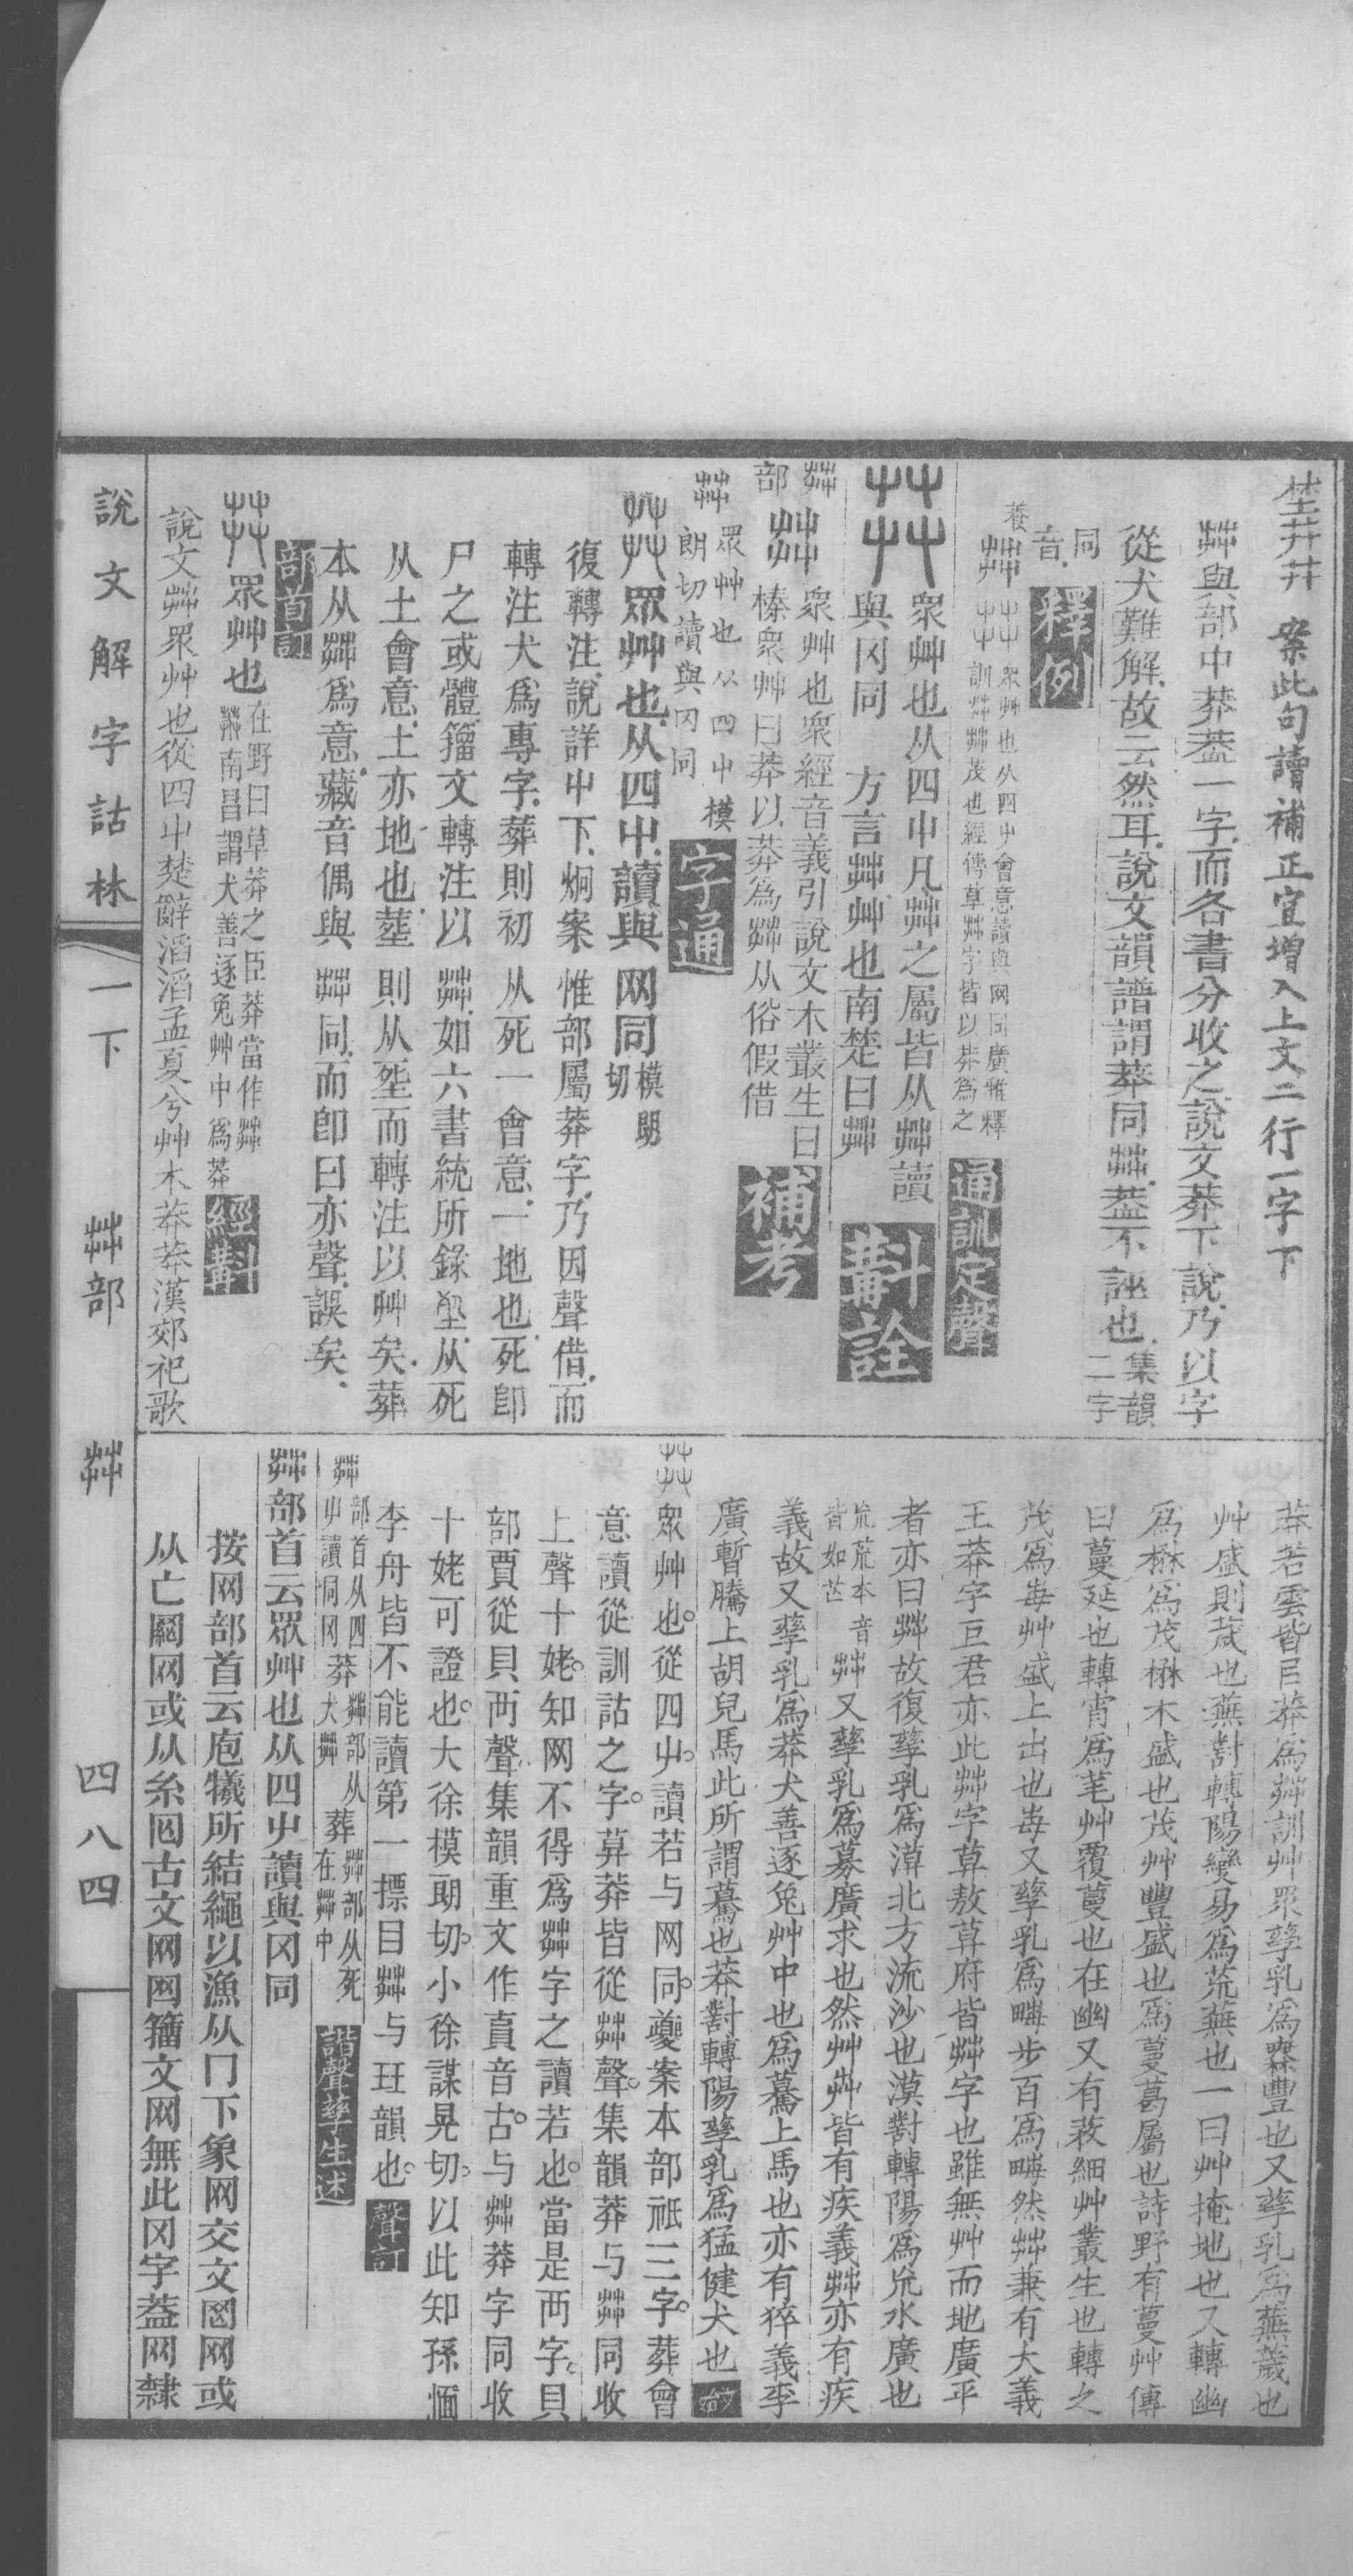 㙓茻茻　案此句讀補正宜增入上文二行一字下
茻與部中莽葢一字而各書分收之說文莽下說乃以字
從犬難解故云然耳說文韻譜謂莽同茻葢不誣也集韻二字
同音 釋例
茻 茻眾艸也从四屮會意讀與网同廣雅釋訓茻茻茂也經傳草茻字皆以莽爲之 通訓定聲
茻 衆艸也从四屮凡茻之屬皆从茻讀
與冈同　方言茻艸也南楚曰茻 斠詮
茻部 茻 衆艸也衆經音義引說文木叢生曰榛衆艸曰莽以莽爲茻从俗假借 補考
茻 眾艸也从四屮模朗切讀與冈同 字通
茻 眾艸也从四屮讀與网同模朗切
復轉注說詳屮下炯案惟部屬莽字乃因聲借而
轉注犬爲專字葬則初从死一會意一地也死卽
尸之或體籀文轉注以茻如六書統所錄㘸从死
从土會意土亦地也塟則从垩而轉注以艸矣葬
本从茻爲意藏音偶與茻同而卽曰亦聲誤矣
部首訂
茻 眾艸也在野曰草莽之臣莽當作茻茻南昌謂犬善逐兔艸中爲莽 經斠
說文茻眾艸也從四屮楚辭滔滔孟夏兮艸木莽莽漢郊祀歌
莽若雲皆㠯莽爲茻訓艸眾孳乳爲橆豐也又孳乳爲蕪薉也
艸盛則薉也蕪對轉陽變易爲荒蕪也一曰艸掩地也又轉幽
爲楙爲茂楙木盛也茂艸豐盛也爲蔓葛屬也詩野有蔓艸傳
曰蔓延也轉宵爲芼艸覆蔓也在幽又有莍細艸叢生也轉之
茂爲毎艸盛上出也毎又孳乳爲畮步百爲畮然茻兼有大義
王莽字巨君亦此茻字草敖草府皆茻字也雖無艸而地廣平
者亦曰茻故復孳乳爲漠北方流沙也漠對轉陽爲㳘水廣也
㳘荒本音皆如芒茻又孳乳爲募廣求也然艸茻皆有疾義茻亦有疾
義故又孳乳爲莽犬善逐兔艸中也爲驀上馬也亦有猝義李
廣暫騰上胡兒馬此所謂驀也莽對轉陽孳乳爲猛健犬也 文始
茻 眾艸也從四屮讀若与网同夔案本部祇三字葬會
意讀從訓詁之字莫莽皆從茻聲集韻莽与茻同收
上聲十姥知网不得爲茻字之讀若也當是㒳字貝
部賈從貝㒳聲集韻重文作𧶠音古与茻莽字同收
十姥可證也大徐模朗切小徐謀晃切以此知孫愐
李舟皆不能讀第一摽目茻与玨韻也 聲訂
茻部首从四屮讀同冈 莽茻部从犬茻 葬茻部从死在茻中 諧聲孳生述
茻部首云眾艸也从四屮讀與冈同
按网部首云庖犧所結繩以漁从冂下象网交文𦉸网或
从亡䋄网或从糸𦉪古文网网籀文网無此冈字葢网隸
說文解字詁林　一下　艸部　茻　四八四